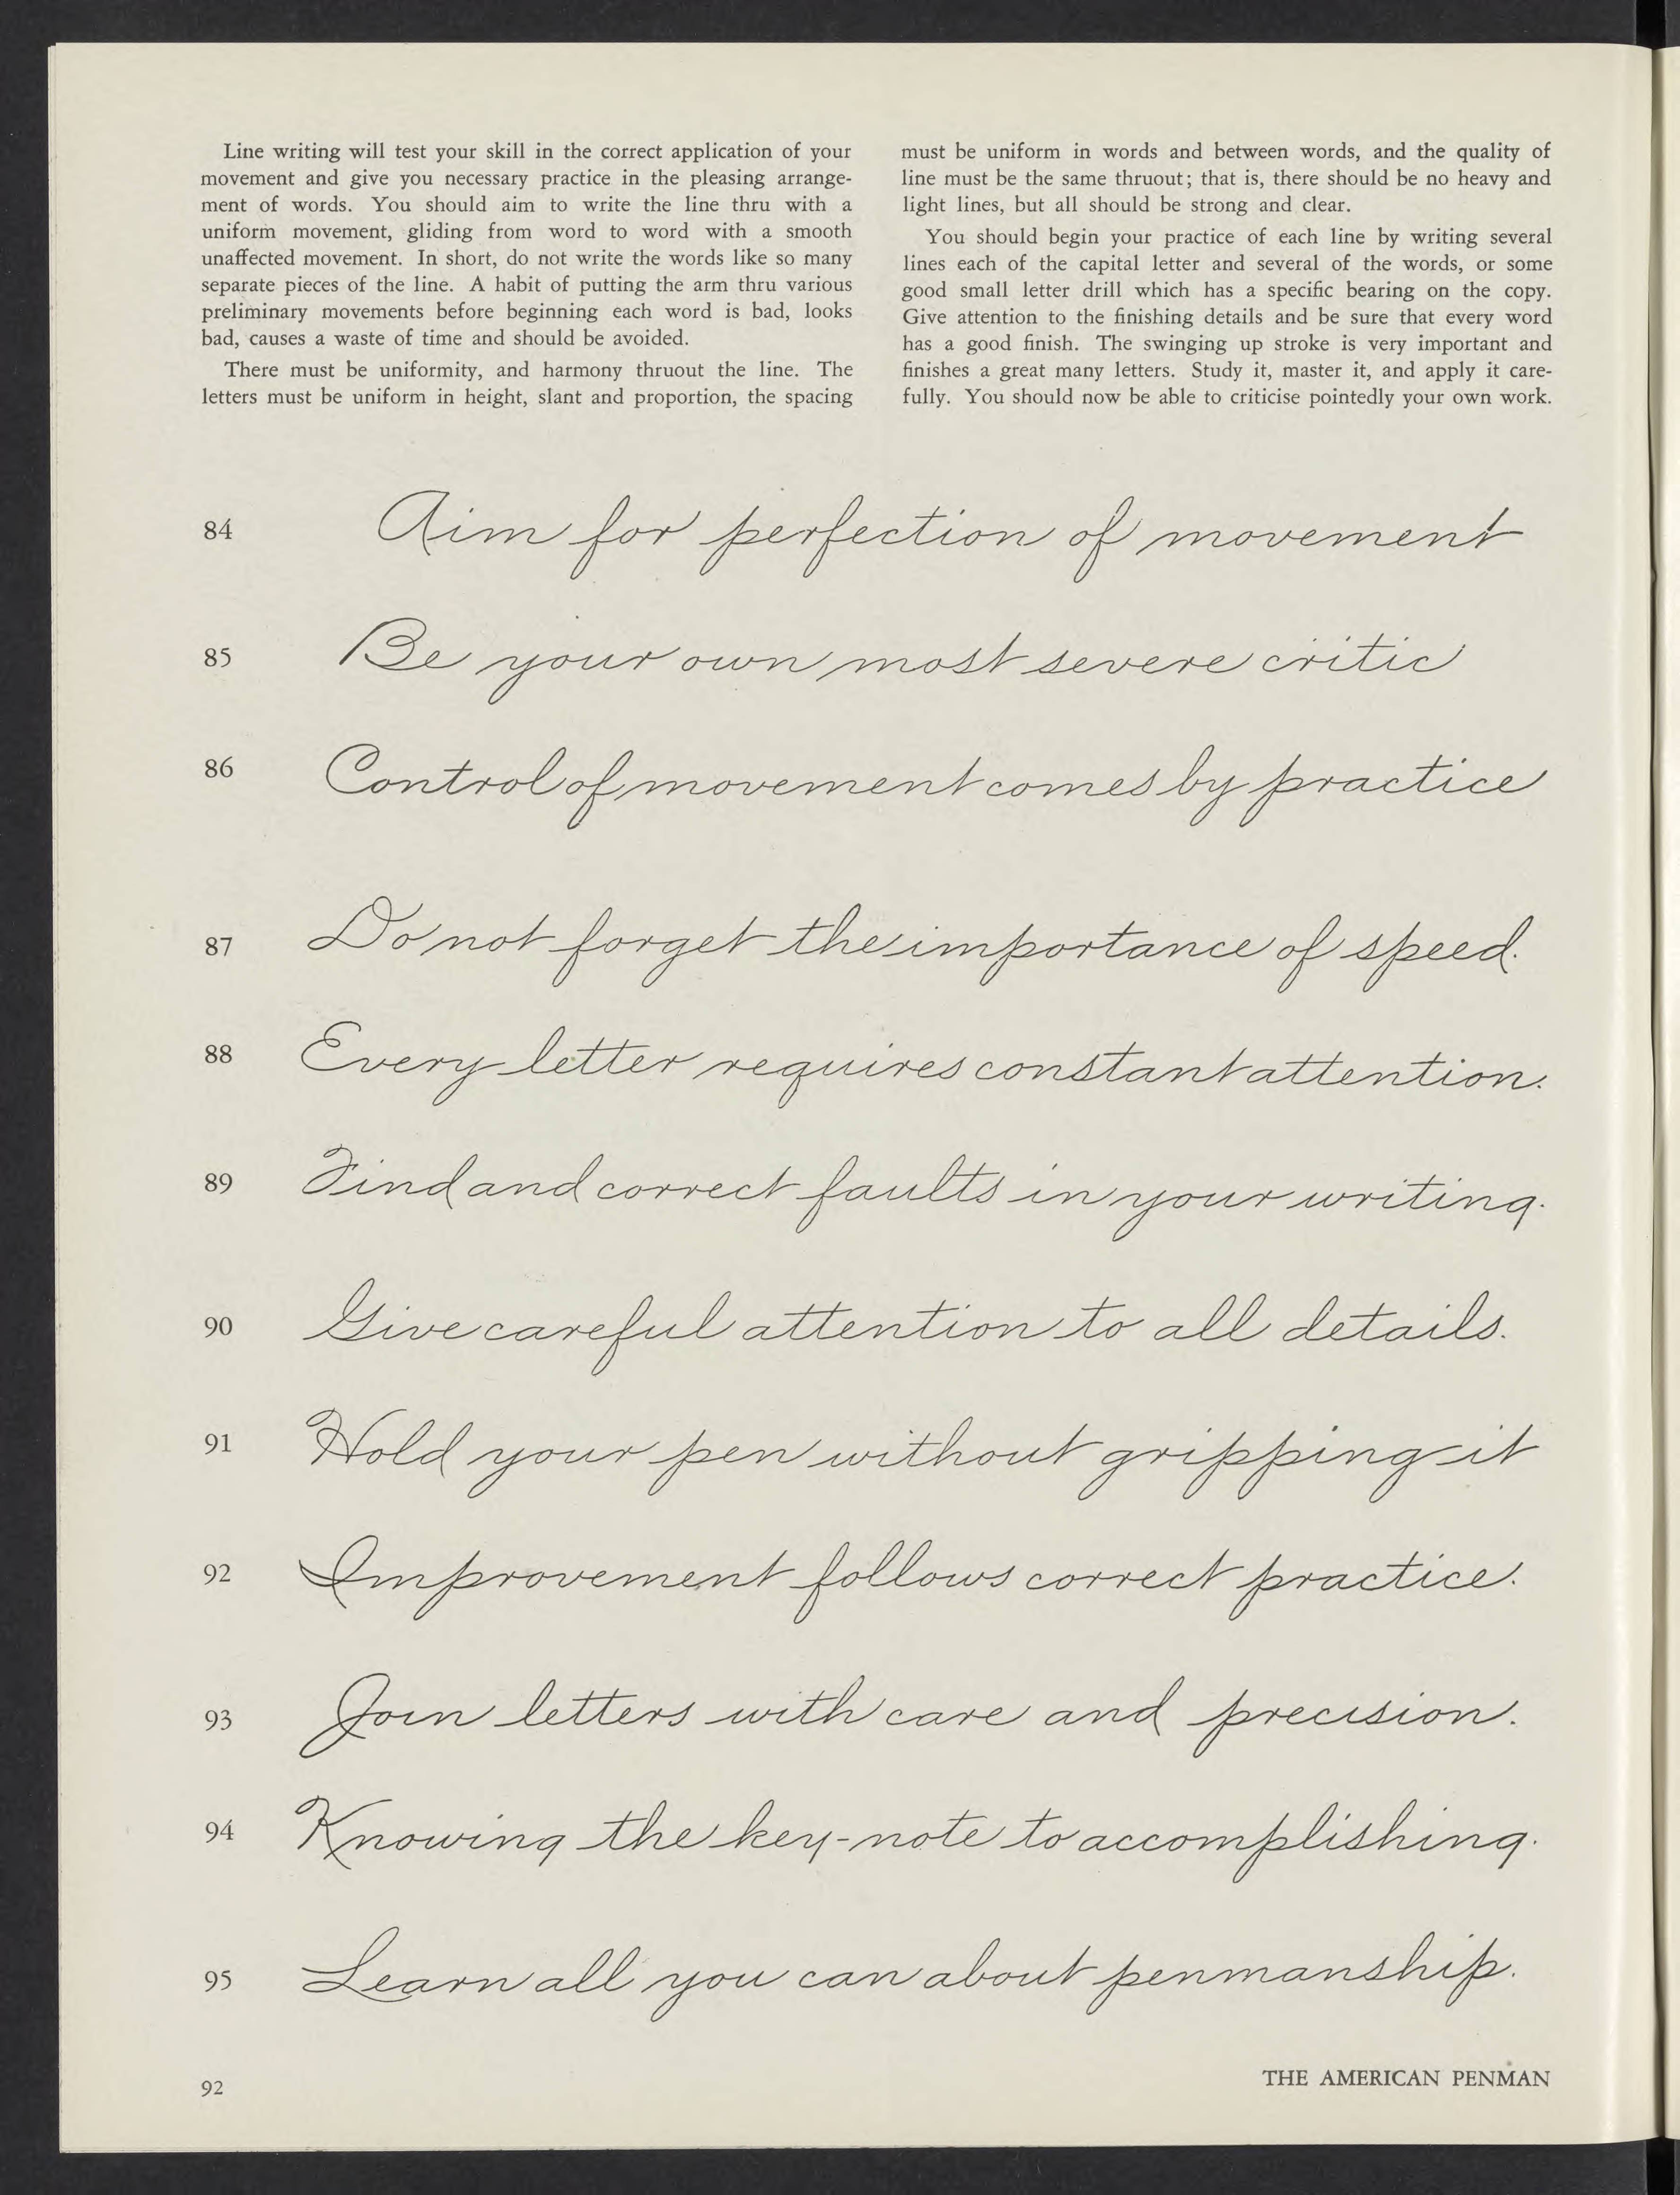 Line writing will test your skill in the correct application of your
movement and give you necessary practice in the pleasing arrange-
ment of words. You should aim to write the line thru with a
uniform movement, gliding from word to word with a smooth
unaffected movement. In short, do not write the words like so many
separate pieces of the line. A habit of putting the arm thru various
preliminary movements before beginning each word is bad, looks
bad, causes a waste of time and should be avoided.
There must be uniformity, and harmony thruout the line. The
letters must be uniform in height, slant and proportion, the spacing
must be uniform in words and between words, and the quality of
line must be the same thruout; that is, there should be no heavy and
light lines, but all should be strong and clear.
You should begin your practice of each line by writing several
lines each of the capital letter and several of the words, or some
good small letter drill which has a specific bearing on the copy.
Give attention to the finishing details and be sure that every word
has a good finish. The swinging up stroke is very important and
finishes a great many letters. Study it, master it, and apply it care-
fully. You should now be able to criticise pointedly your own work.
84 Aim for perfection of movement
85 Be your own most severe critic
86 Control of movement comes by practice
87 Do not forget the importance of speed.
88 Every letter requires constant attention.
89 Find and correct faults in your writing.
90 Give careful attention to all details.
91 Hold your pen without gripping it
92 Improvement follows correct practice.
93 Join letters with care and precision.
94 Knowing the key-note to accomplishing.
95 Learn all you can about penmanship.
92 THE AMERICAN PENMAN